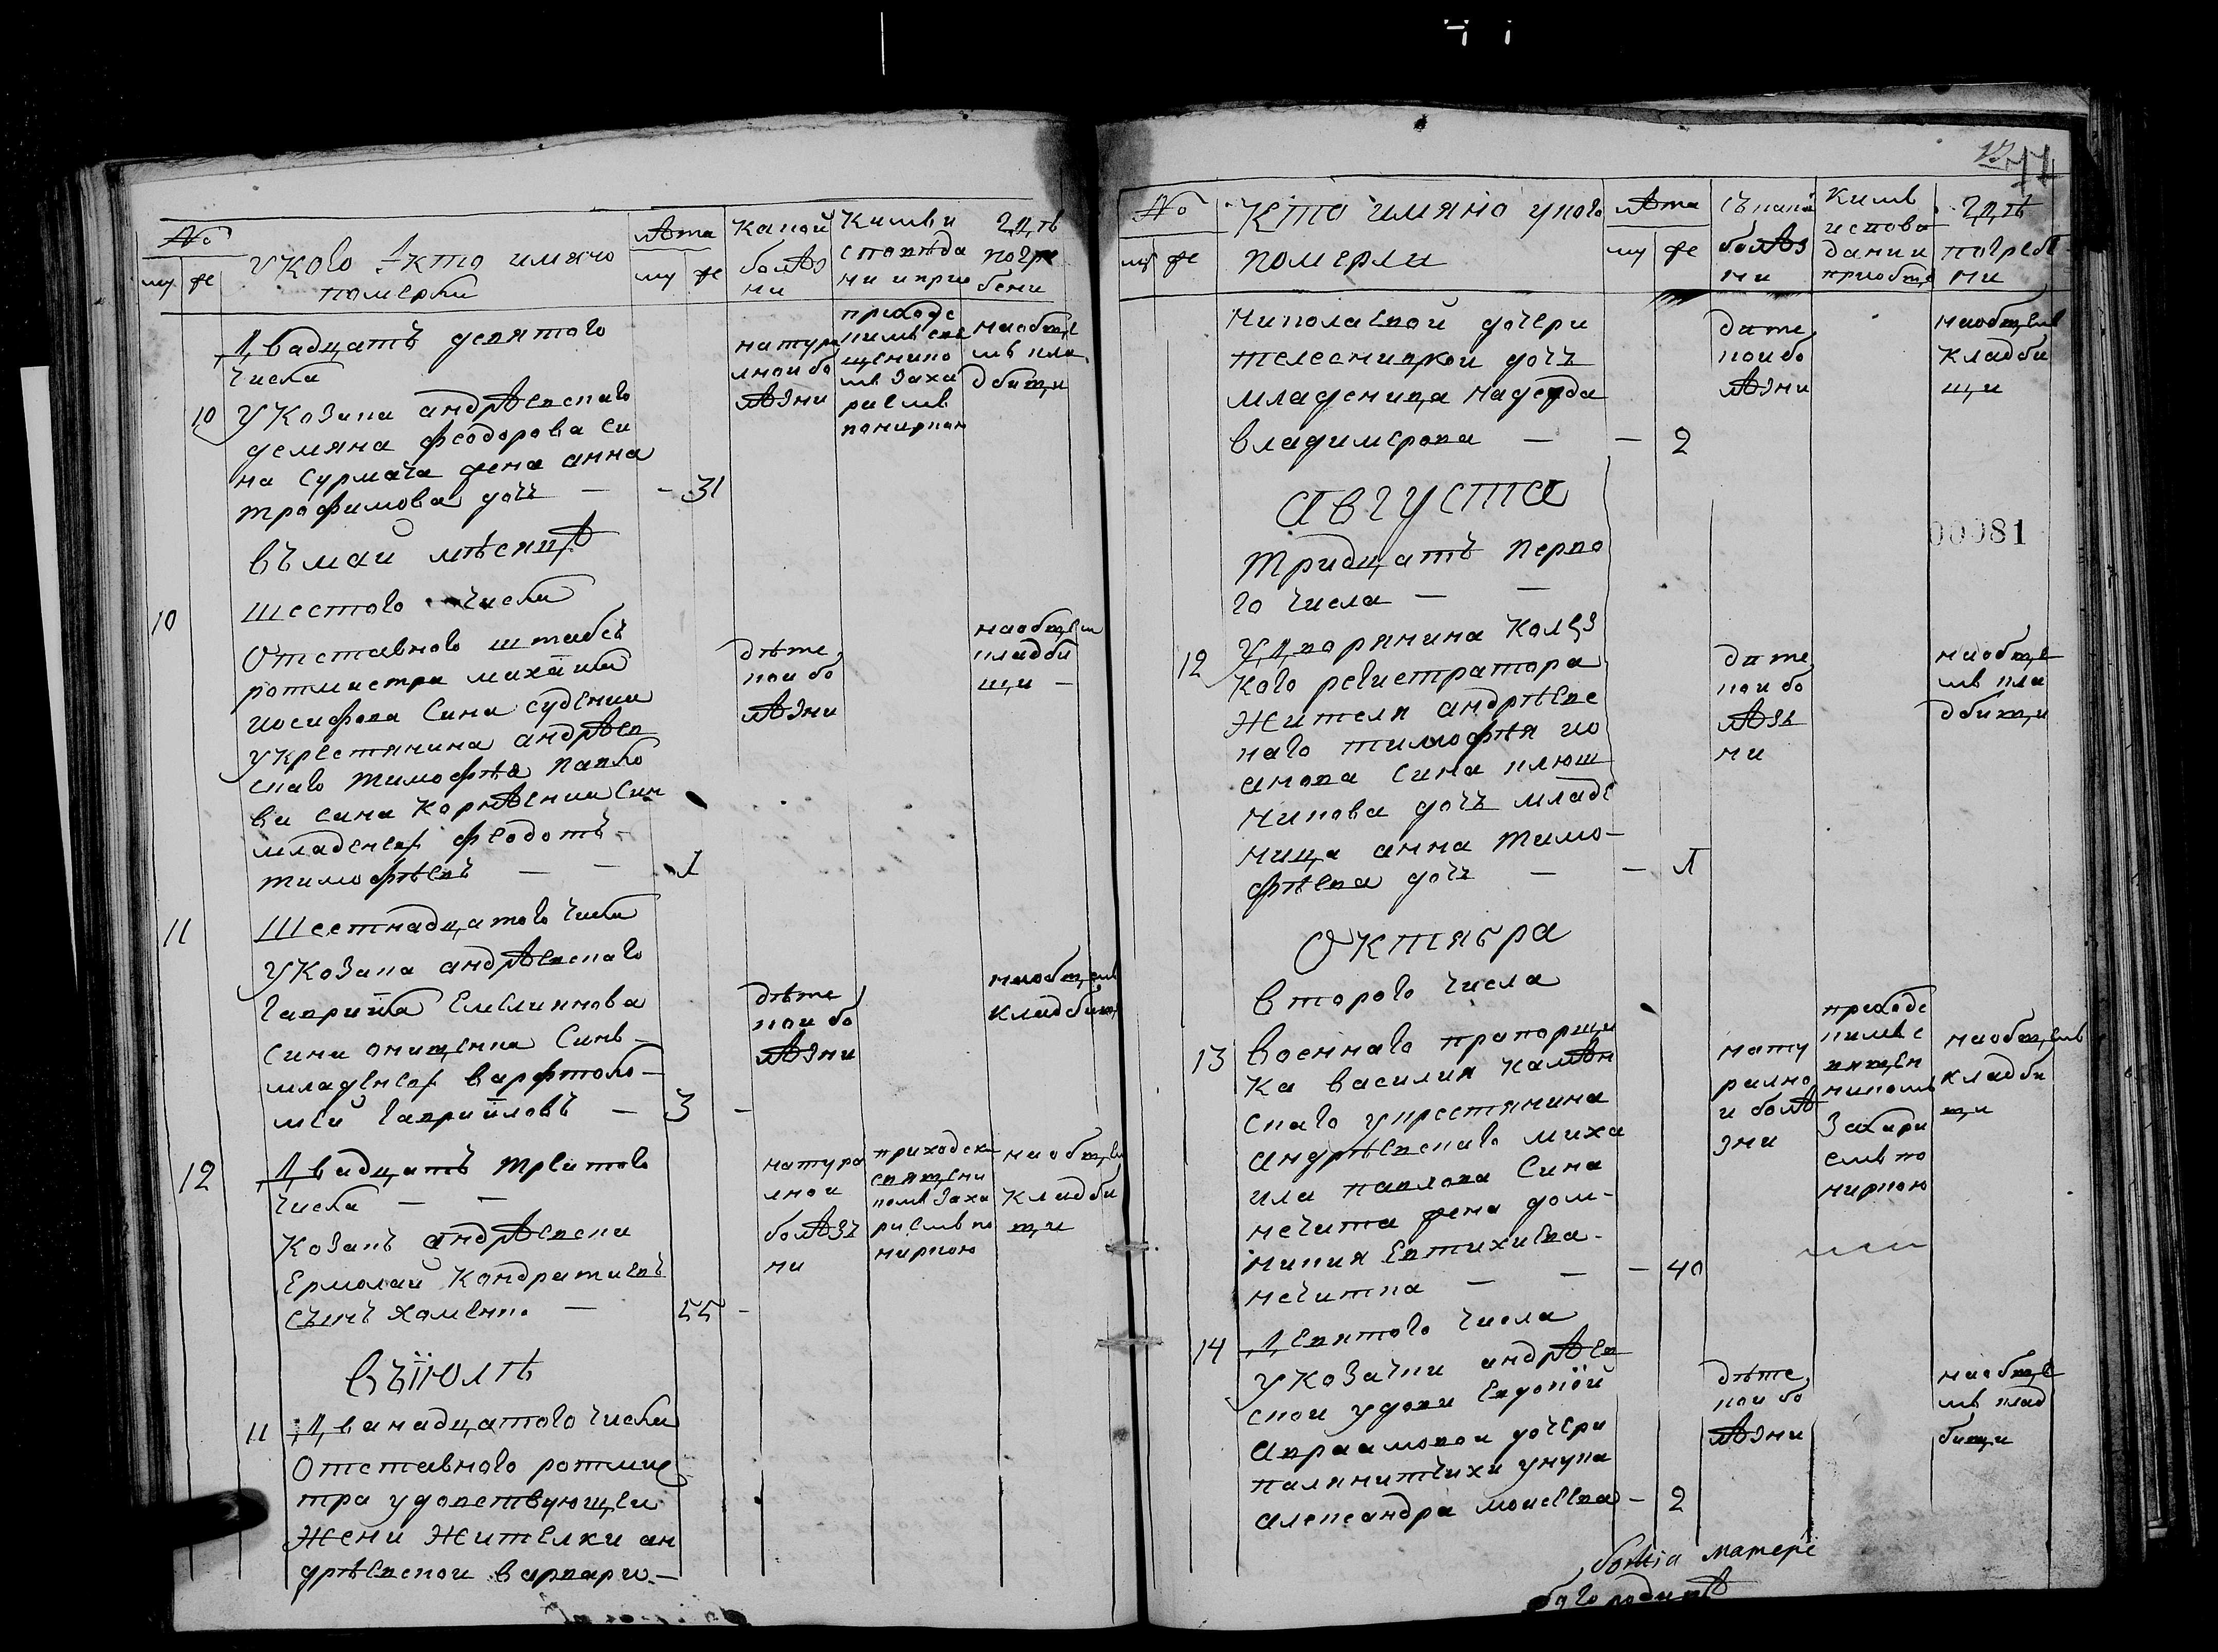 №
му же
у кого и кто имяно
померли
лѣта
му же
Какой
болѣз
ни
Кимъ и
сповѣда
ни и прио
гдѣ
погре
бени
Двадцать девятого
числа
10 У Козака андрѣевскаго
демяна феодорова си
на Сурмача жена анна
трофимова дочь — - 31
натура
лной бо
лѣзни
приходс
кимъ свя
щенико
мъ Заха
риемъ
на общe
мъ кла
дбищи
въ маи мѣсяцѣ
10 шестого числа
Отставного штабсъ
ротмистра михаила
иосифова сина
у крестянина андрѣев
скаго тимофѣя павло
ва сина
младенец феодотъ
тимофѣевъ — — 1
дѣтс
кой бо
лѣзни
на общем
кладби
щи —
11 Шестнадцатого числа
У Козака андрѣевскаго
гавриила Емелиянова
сина онищенка Синъ
младенец варфтоло-
мей гавриловъ — 3 -
дѣтс
кой бо
лѣзни
на общемъ
кладбищ
12 Двадцать третого
числа — —
Козакъ андрѣевски
Ермолай Кондратиевъ
сынъ хоменко — 55 -
натура
лной
болѣзъ
ни
приходск
священи
комъ Заха
риемъ по
на общем
кладби
щи
Въ июлѣ
11 Дванадцатого числа
Отставного ротмис
тра удовствующей
Жени Жителки ан
дрѣевской варвари —
71
№
му же
Кто имяно у кого
померли
лѣта
му же
съ какой
болѣз
ни
Кимъ
испове
дании
приобще
гдѣ
погребе
ни
николаевой дочери
телесницкой дочъ
младеница надежда
владимерова — - 2
дите
кой бо
лѣзни
на общемъ
кладби
щи
августа
тридцать перво
го числа — —
00081
12 У Дворянина Колез
кого регистратора
Жителя андрѣевс
каго тимофѣя ио
анова сина плюш
никова дочъ младе
ница анна тимо-
фѣева дочь — - 1
дите
кой бо
лѣзъ
ни
на обще
мъ кла
дбищи
Октября
второго числа
13 Военнаго прапорщи
ка василия
скаго у крестянина
андрѣевскаго миха
ила павлова сина
нечита жена дом-
никия Евтихиева
нечитка — — - 40
нату
рално
и болѣ
зни
приходс
кимъ с
вящен
никомъ
Захари
емъ
на общемъ
кладби
щи
14 Девятого числа
У Козачки андрѣев
ской удови Евдокии
авраамовой дочери
паляничихи унука
александра моисеева - 2
дѣтс
кой бо
лѣзни
на обще
мъ клад
бищи
божiа матере
богородицѣ